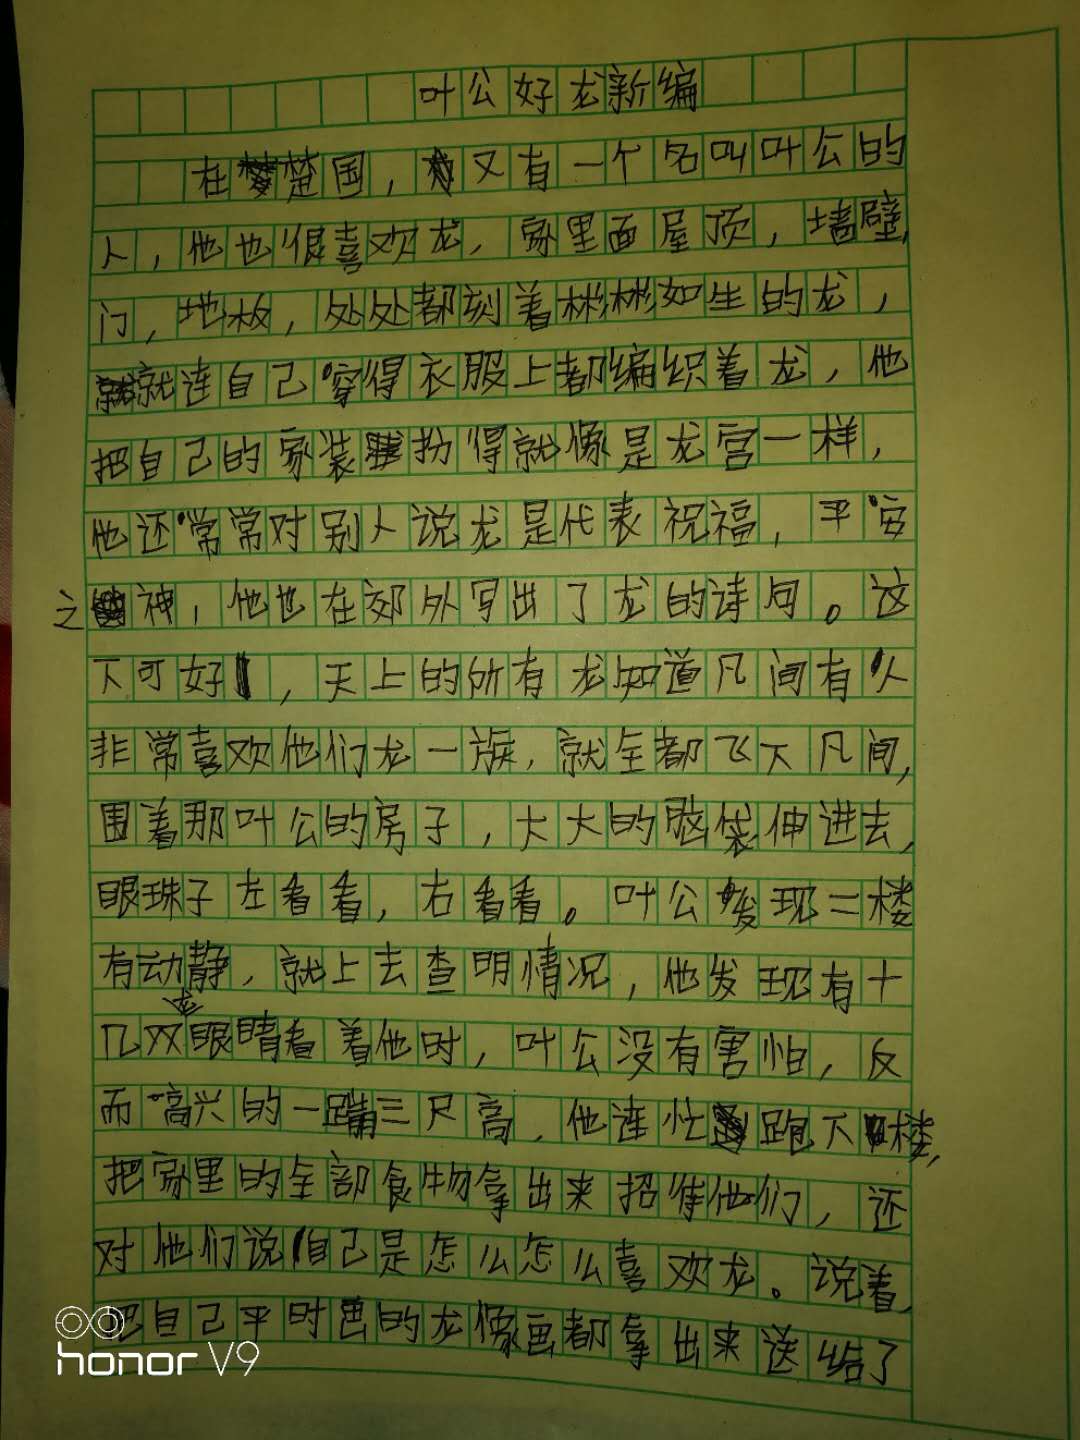 叶公好龙新编
在楚国，又有一个名叫叶公的
人，他也很喜欢龙，家里面屋顶，墙壁，
门，地板，处处都刻着彬彬如生的龙，
就连自己穿得衣服上都编织着龙，他
把自己的家装扮得就像是龙宫一样，
他还常常对别人说龙是代表祝福，平安
之神，他也在郊外写出了龙的诗句。这
下可好，天上的所有龙知道凡间有人
非常喜欢他们龙一族，就全都飞下凡间，
围着那叶公的房子，大大的脑袋伸进去，
眼珠子左看看，右看看。叶公发现二楼
有动静，就上去查明情况，他发现有十
几双龙眼睛看着他时，叶公没有害怕，反
而高兴的一蹦三尺高，他连忙跑下楼，
把家里的全部食物拿出来招待他们，还
对他们说自己是怎么怎么喜欢龙。说着，
把自己平时画的龙像画都拿出来送给了
honor V9